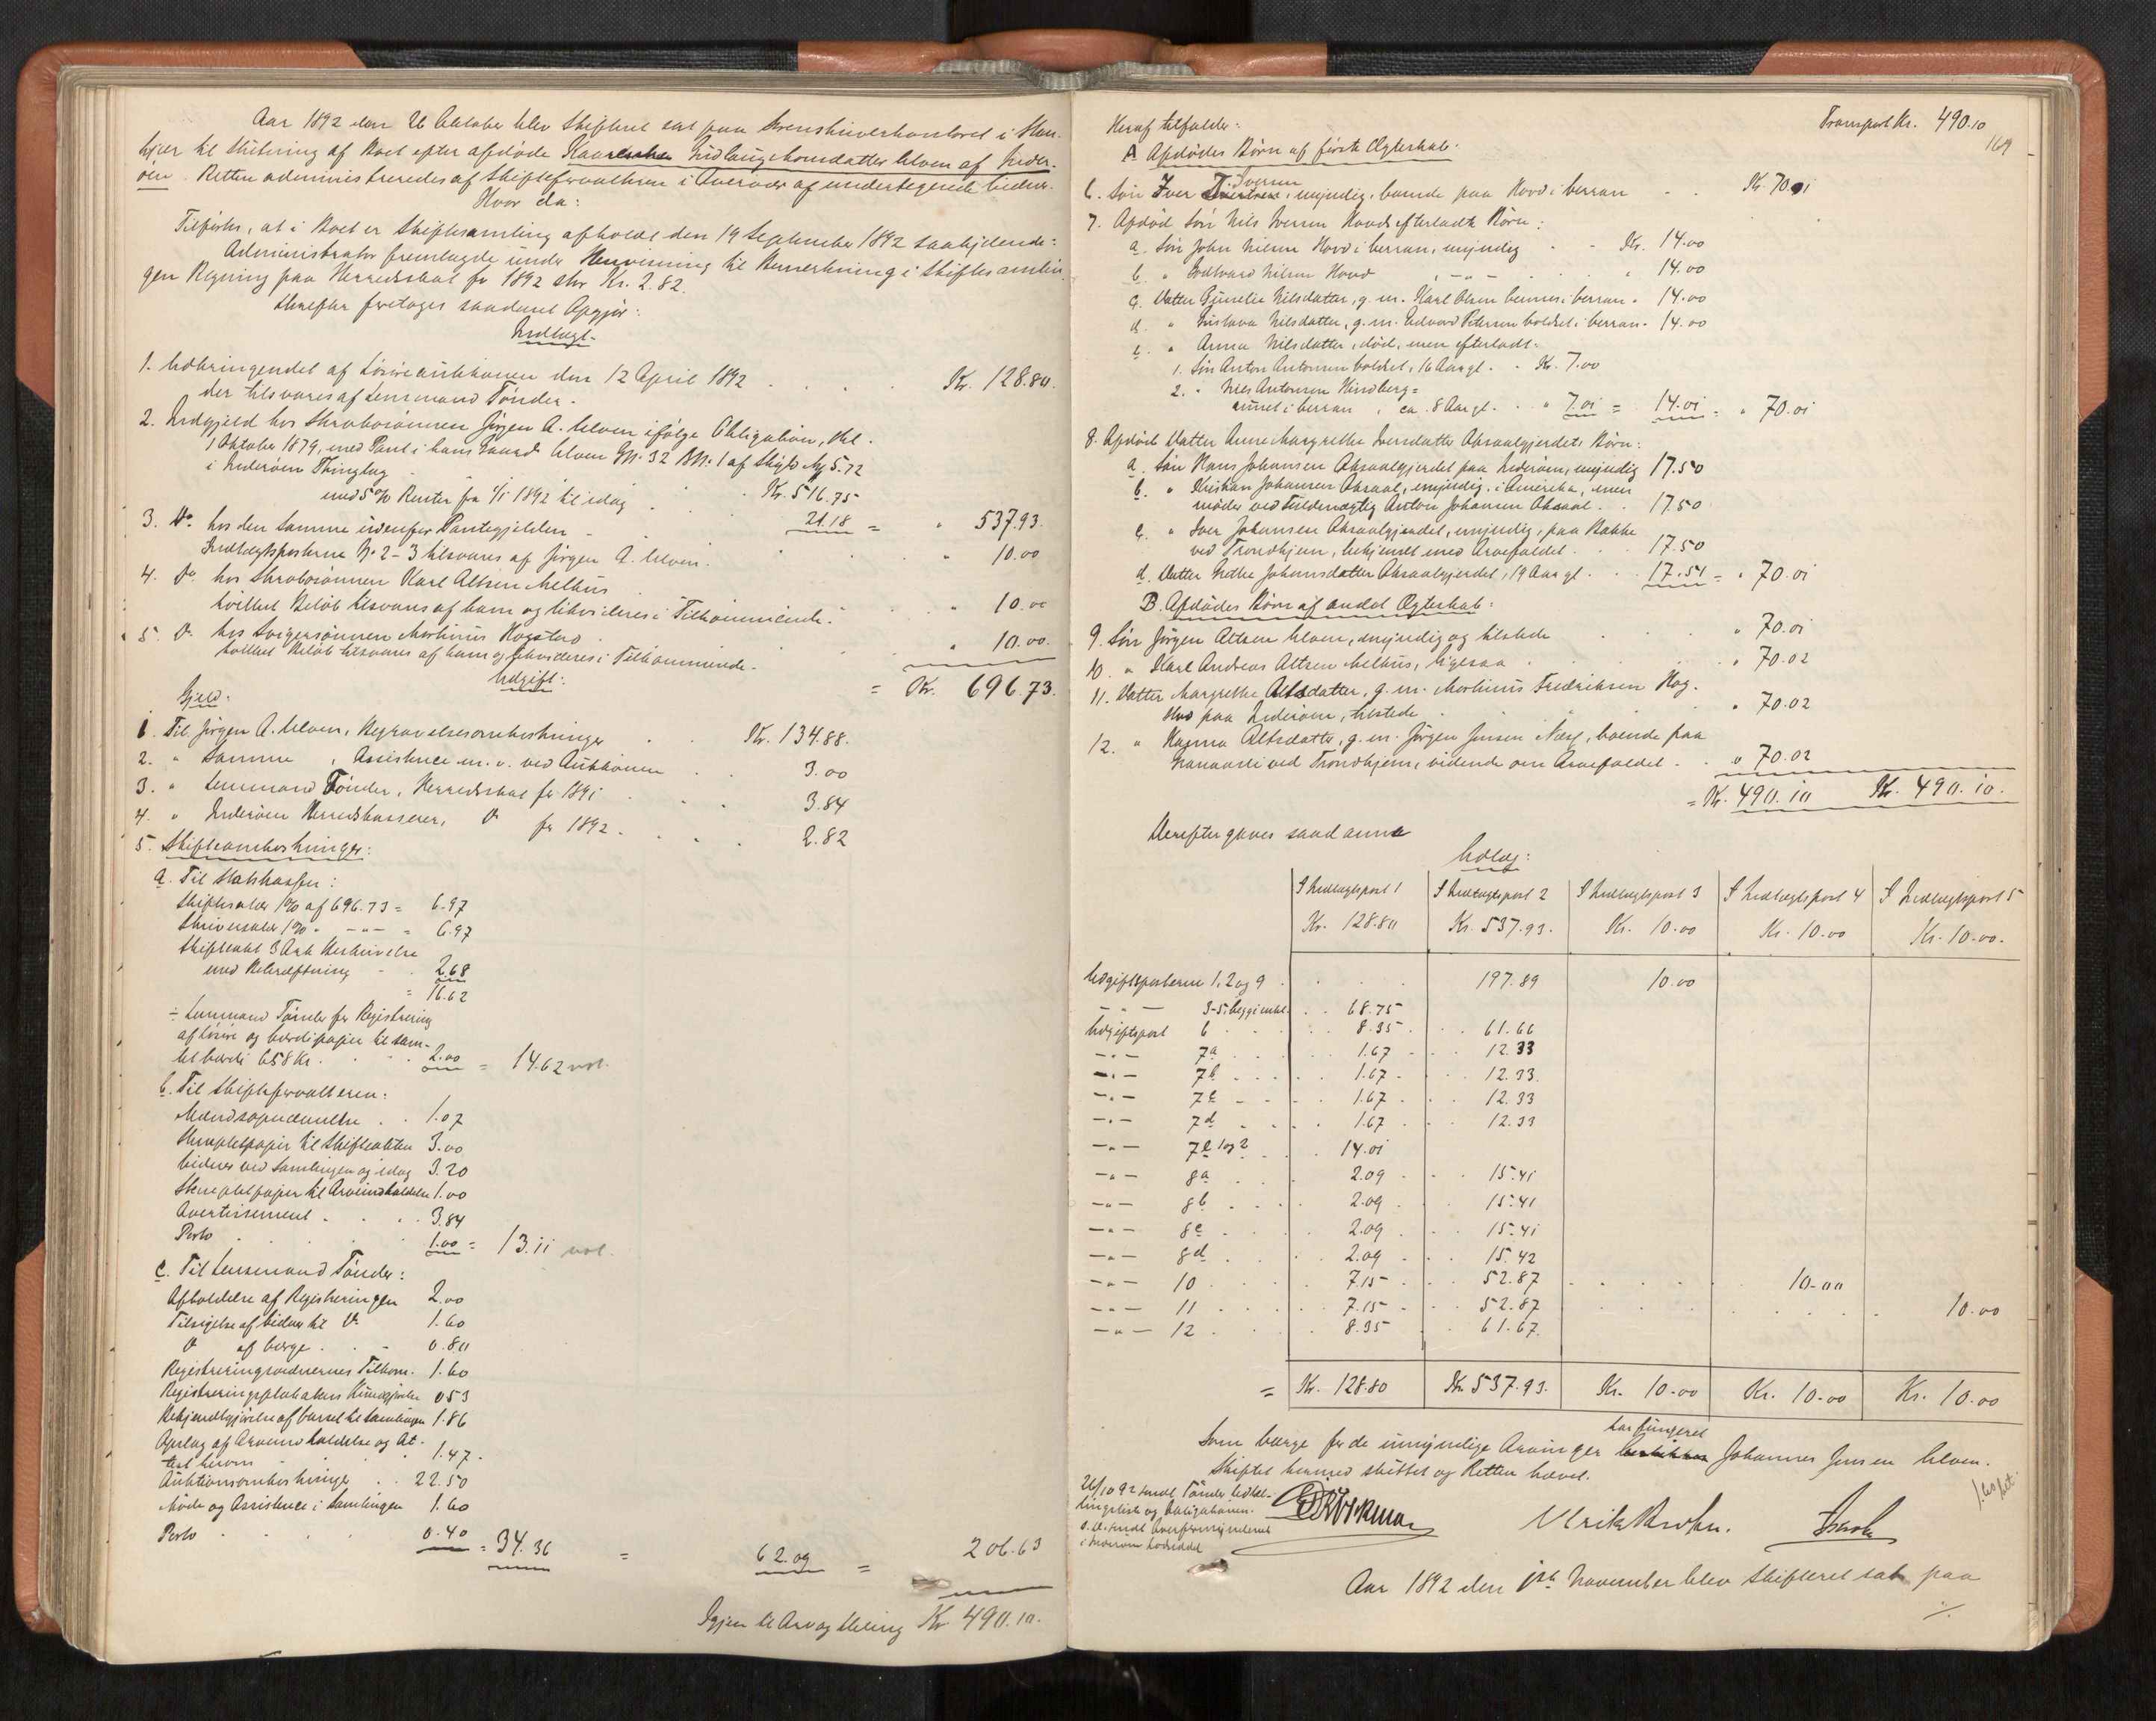 Aar 1892 den 26 Oktober blev Skifteret sat paa Sorenskriverkontoret i Sten-
kjær til Slutning af Boet efter afdøde Gudlaug Jonsdatter Ulven af Inder-
øen. Retten administreredes af Skifteforvalteren i Overvær af undertegnede Vidner.
Hvor da:
Tilførtes, at i Boet er Skiftesamling afholdt den 19 September 1892
Administrator fremlagde under Henvisning til Bemerkning i Skiftesamlin-
gen Regning paa Herredsskat for 1892 stor Kr. 2.82.
Derefter foretoges saadant Opgjør:
Indtægt.
1. Udbringendet af Løsøreauktionen den 12 April 1892 Kr. 128.80
der tilsvares af Lensmand Tønder.
2. Indgjeld hos Skrabosønnen Jørgen A. Ulven ifølge Obligation, dat.
1 Oktober 1879, med Pant i hans Gaard Ulven Gn. 32 Bn. 1 af Skyld My 5.72
i Inderøens Thinglag Kr. 516.75
med 5% Renter fra 1/1 1892 til idag 21.18 = " 537.93.
3. Do. hos den samme udenfor Pantegjelden " 10.00
Indtægtsposterne No 2-3 tilsvares af Jørgen A. Ulven.
4. Do hos Skrabosønnen Karl Altsen Melhus " 10.00
hvilket Beløb tilsvares af ham og likvideres i Tilkommende.
5. Do. hos Svigersønnen Mortinus Hogstad " 10.00.
hvilket Beløb tilsvares af ham og likvideres i Tilkommende.
= Kr. 696.73.
Udgift:
Gjeld:
1. Til Jørgen A. Ulven, Begravelsesomkostninger Kr. 134.88.
2. " Samme, Assistence m. v. ved Auktionen 3.00
3. " Lensmand Tønder, Herredsskat for 1891 3.84
4. " Inderøens Herredskasserer, Do for 1892 2.82
5. Skifteomkostninger:
a. Til Statskassen:
Skifteafgift 1% af 696.73 = 6.97
Skriversaler 1% " -"- = 6.97
Skifteakt 3 Ark Beskrivelse
med Bekræftning 2.68
= 16.62
÷ Lensmand Tønder for Registrering
af Løsøre og Værdipapirer til sam-
let Værdi 658 Kr. 2.00 = 14.62 not.
b. Til Skifteforvalteren:
Mændsopnævnelse 1.07
Stempletpapir til Skifteakten 3.00
Vidner ved Samlingen og idag 3.20
Stempletpapir til Arveindkaldelse 1.00
Avertissement 3.84
Porto 1.00 = 13.11 not.
c. Til Lensmand Tønder:
Afholdelse af Registreringen 2.00
Tilsigelse af Vidner til Do. 1.60
Do af Værge 0.80
Registreringsvidnernes Tilkom. 1.60
Registreringsplakatens Kundgjørelse 0.53
Bekjendtgjørelse af Varsel til Samlingen 1.86
Opslag af Arveindkaldelse og At-
test herom 1.47
Auktionsomkostninger 22.50
Møde og Assistence i Samlingen 1.60
Porto 0.40 = 34.36 = 62.09 = 206.63
Igjen til Arv og Deling Kr. 490.10.
Transport Kr. 490.10
164
Heraf tilfalder:
A Afdødes Børn af første Ægteskab:
6. Søn Iver Iversen, myndig, boende paa Hovd i Verran Kr. 70.01
7. Afdød Søn Nils Iversen Hovds efterladte Børn:
a. Søn John Nilsen Hovd i Verran, myndig Kr. 14.00
b. " Edvard Nilsen Hovd -"- " 14.00
c. Datter Gunelie Nilsdatter, g. m. Karl Olsen Vennes i Verran 14.00
d. " Gustava Nilsdatter, g. m. Edvard Petersen Voldset i Verran 14.00
e. " Anna Nilsdatter, død, men efterladt:
1. Søn Anton Antonsen Voldset, 16 Aar gl. Kr. 7.00
2. " Nils Antonsen Hindberg-
vald i Verran, ca. 8 Aar gl. " 7.01 = 14.01 = " 70.01
8. Afdød Datter Anne Margrethe Iversdatter Aksaalgjerdets Børn:
a. Søn Hans Johansen Aksaalgjerdet paa Inderøen, myndig 17.50
b. " Kristian Johansen Aksaal, myndig, i Amerika, men
møder ved Fuldmægtig Anton Johansen Aksaal 17.50
c. " Iver Johansen Aksaalgjerdet, myndig, paa Bakke
ved Trondhjem, bekjendt med Arvefaldet 17.50
d. Datter Grethe Johansdatter Aksaalgjerdet, 19 Aar gl. 17.51 = " 70.01
B. Afdødes Børn af andet Ægteskab:
9. Søn Jørgen Altsen Ulven, myndig og tilstede " 70.01
10. " Karl Andreas Altsen Melhus, ligesaa " 70.02
11. Datter Margrethe Altsdatter, g. m. Mortinus Fredriksen Hog-
stad paa Inderøen, tilstede " 70.02
12. " Hagna Altsdatter, g. m. Jørgen Jensen Næss, boende paa
Ranasli ved Trondhjem, vidende om Arvefaldet " 70.02
= Kr. 490.10 Kr. 490.10.
Derefter gjøres saadanne
Udlæg:
I Indtægtspost 1 I Indtægtspost 2 I Indtægtspost 3 I Indtægtspost 4 I Indtægtspost 5
Kr. 128.80 Kr. 537.93. Kr. 10.00 Kr. 10.00 Kr. 10.00.
Udgiftsposterne 1, 2 og 9 197.89 10.00
-"- 3-5 begge inkl. 68.75
Udgiftspost 6 8.35 61.66
-"- 7a 1.67 12.33
-"- 7b 1.67 12.33.
-"- 7c 1.67 12.33
-"- 7d 1.67 12.33
-"- 7e 1 og 2 14.01
-"- 8a 2.09 15.41
-"- 8b 2.09 15.41
-"- 8c 2.09 15.41
-"- 8d 2.09 15.42
-"- 10 7.15 52.87 10.00
-"- 11 7.15 52.87 10.00
-"- 12 8.35 61.67.
= Kr. 128.80 Kr. 537.93. Kr. 10.00 Kr. 10.00 Kr. 10.00
Som Værge for de umyndige Arvinger har fungeret Johannes Jensen Ulven.
Skiftet hermed sluttet og Retten hævet.
26/10 92 sendt Tønder Udlæg-
lingsliste og Obligationen.
s. D. sendt Overformynderiet
i Inderøen
Ulrik Krohn.
Aar 1892 den 1ste November blev Skifteret sat paa
./.